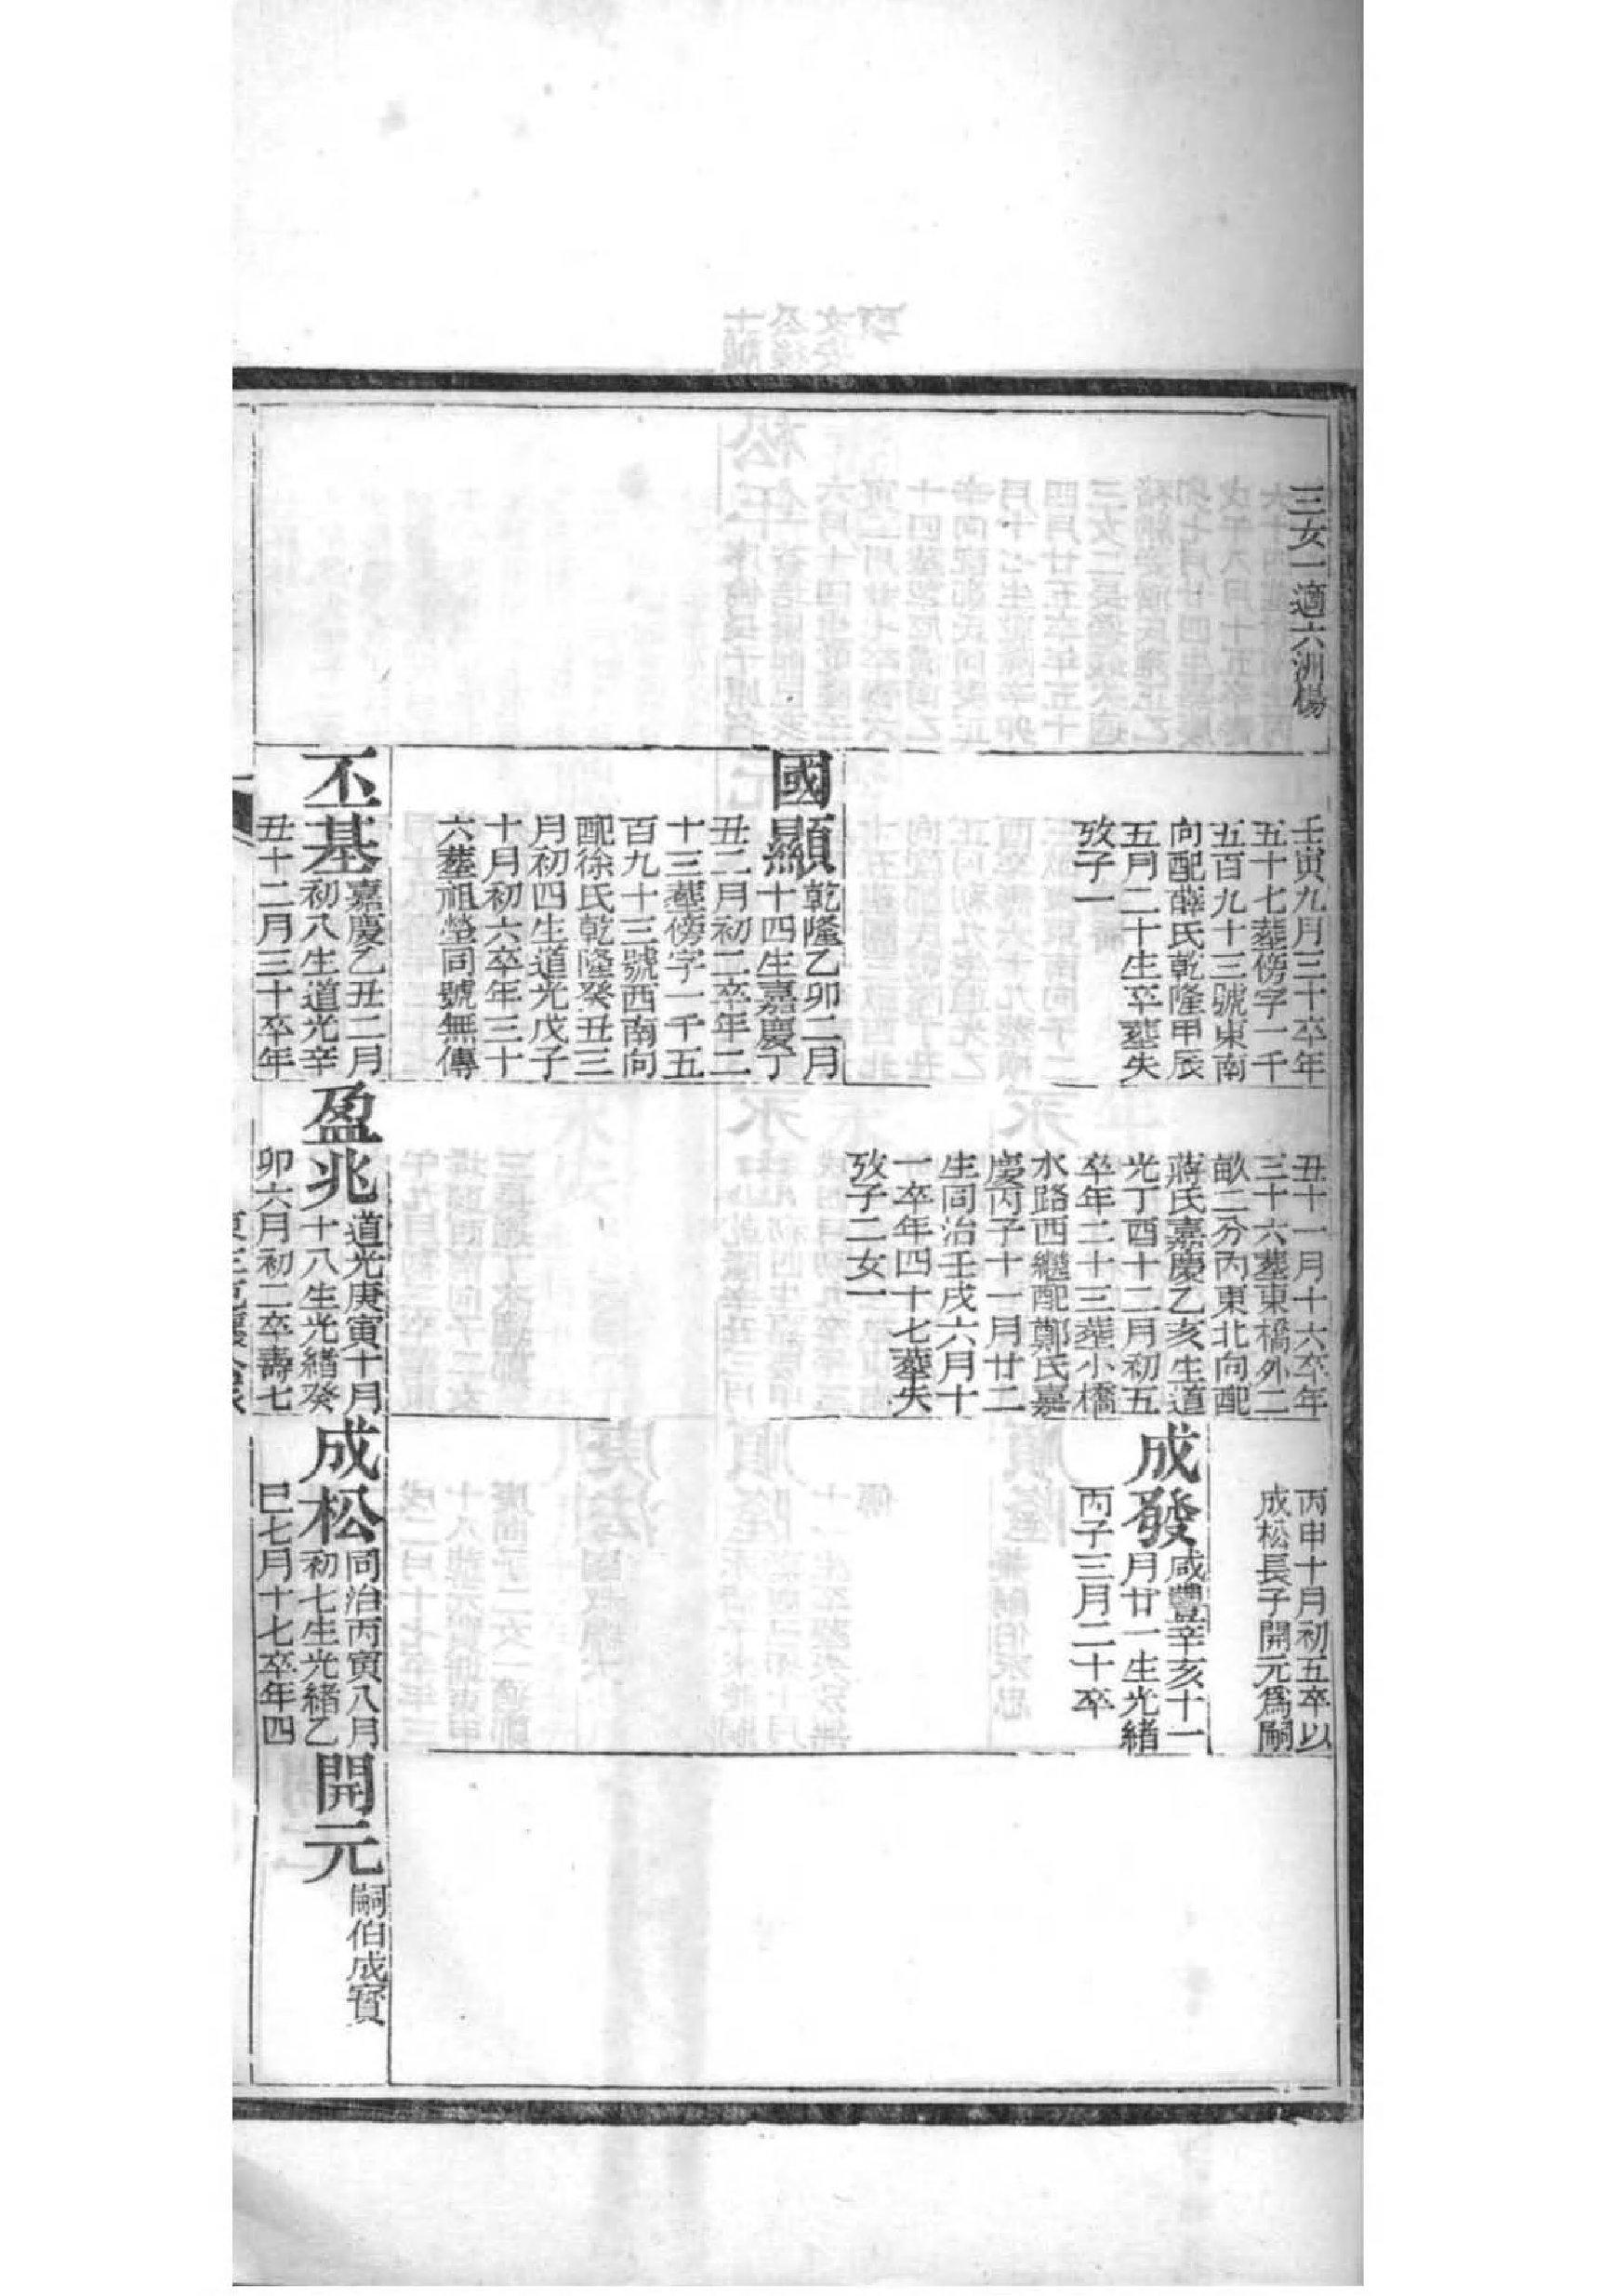 三女一適六洲楊
壬寅九月三十卒年
五十七葬傍字一千
五百九十三號東南
向配薛氏乾隆甲辰
五月二十生卒葬失
攷子一
國顯
乾隆乙卯二月
十四生嘉慶丁
丑二月初二卒年二
十三葬傍字一千五
百九十三號西南向
配徐氏乾隆癸丑三
月初四生道光戊子
十月初六卒年三十
六葬祖塋同號無傳
丕基
嘉慶乙丑二月
初八生道光辛
丑十二月三十卒年
丑十一月十六卒年
三十六葬東橋外二
畝二分丙東北向配
蔣氏嘉慶乙亥生道
光丁酉十二月初五
卒年二十三葬小橋
水路西繼配鄭氏嘉
慶丙子十一月廿二
生同治壬戌六月十
一卒年四十七葬失
攷子二女一
盈兆
道光庚寅十月
十八生光緒癸
卯六月初二卒壽七
丙申十月初五卒以
成松長子開元爲嗣
成發
咸豐辛亥十一
月廿一生光緒
丙子三月二十卒
成松
同治丙寅八月
初七生光緒乙
巳七月十七卒年四
開元
嗣伯成寶